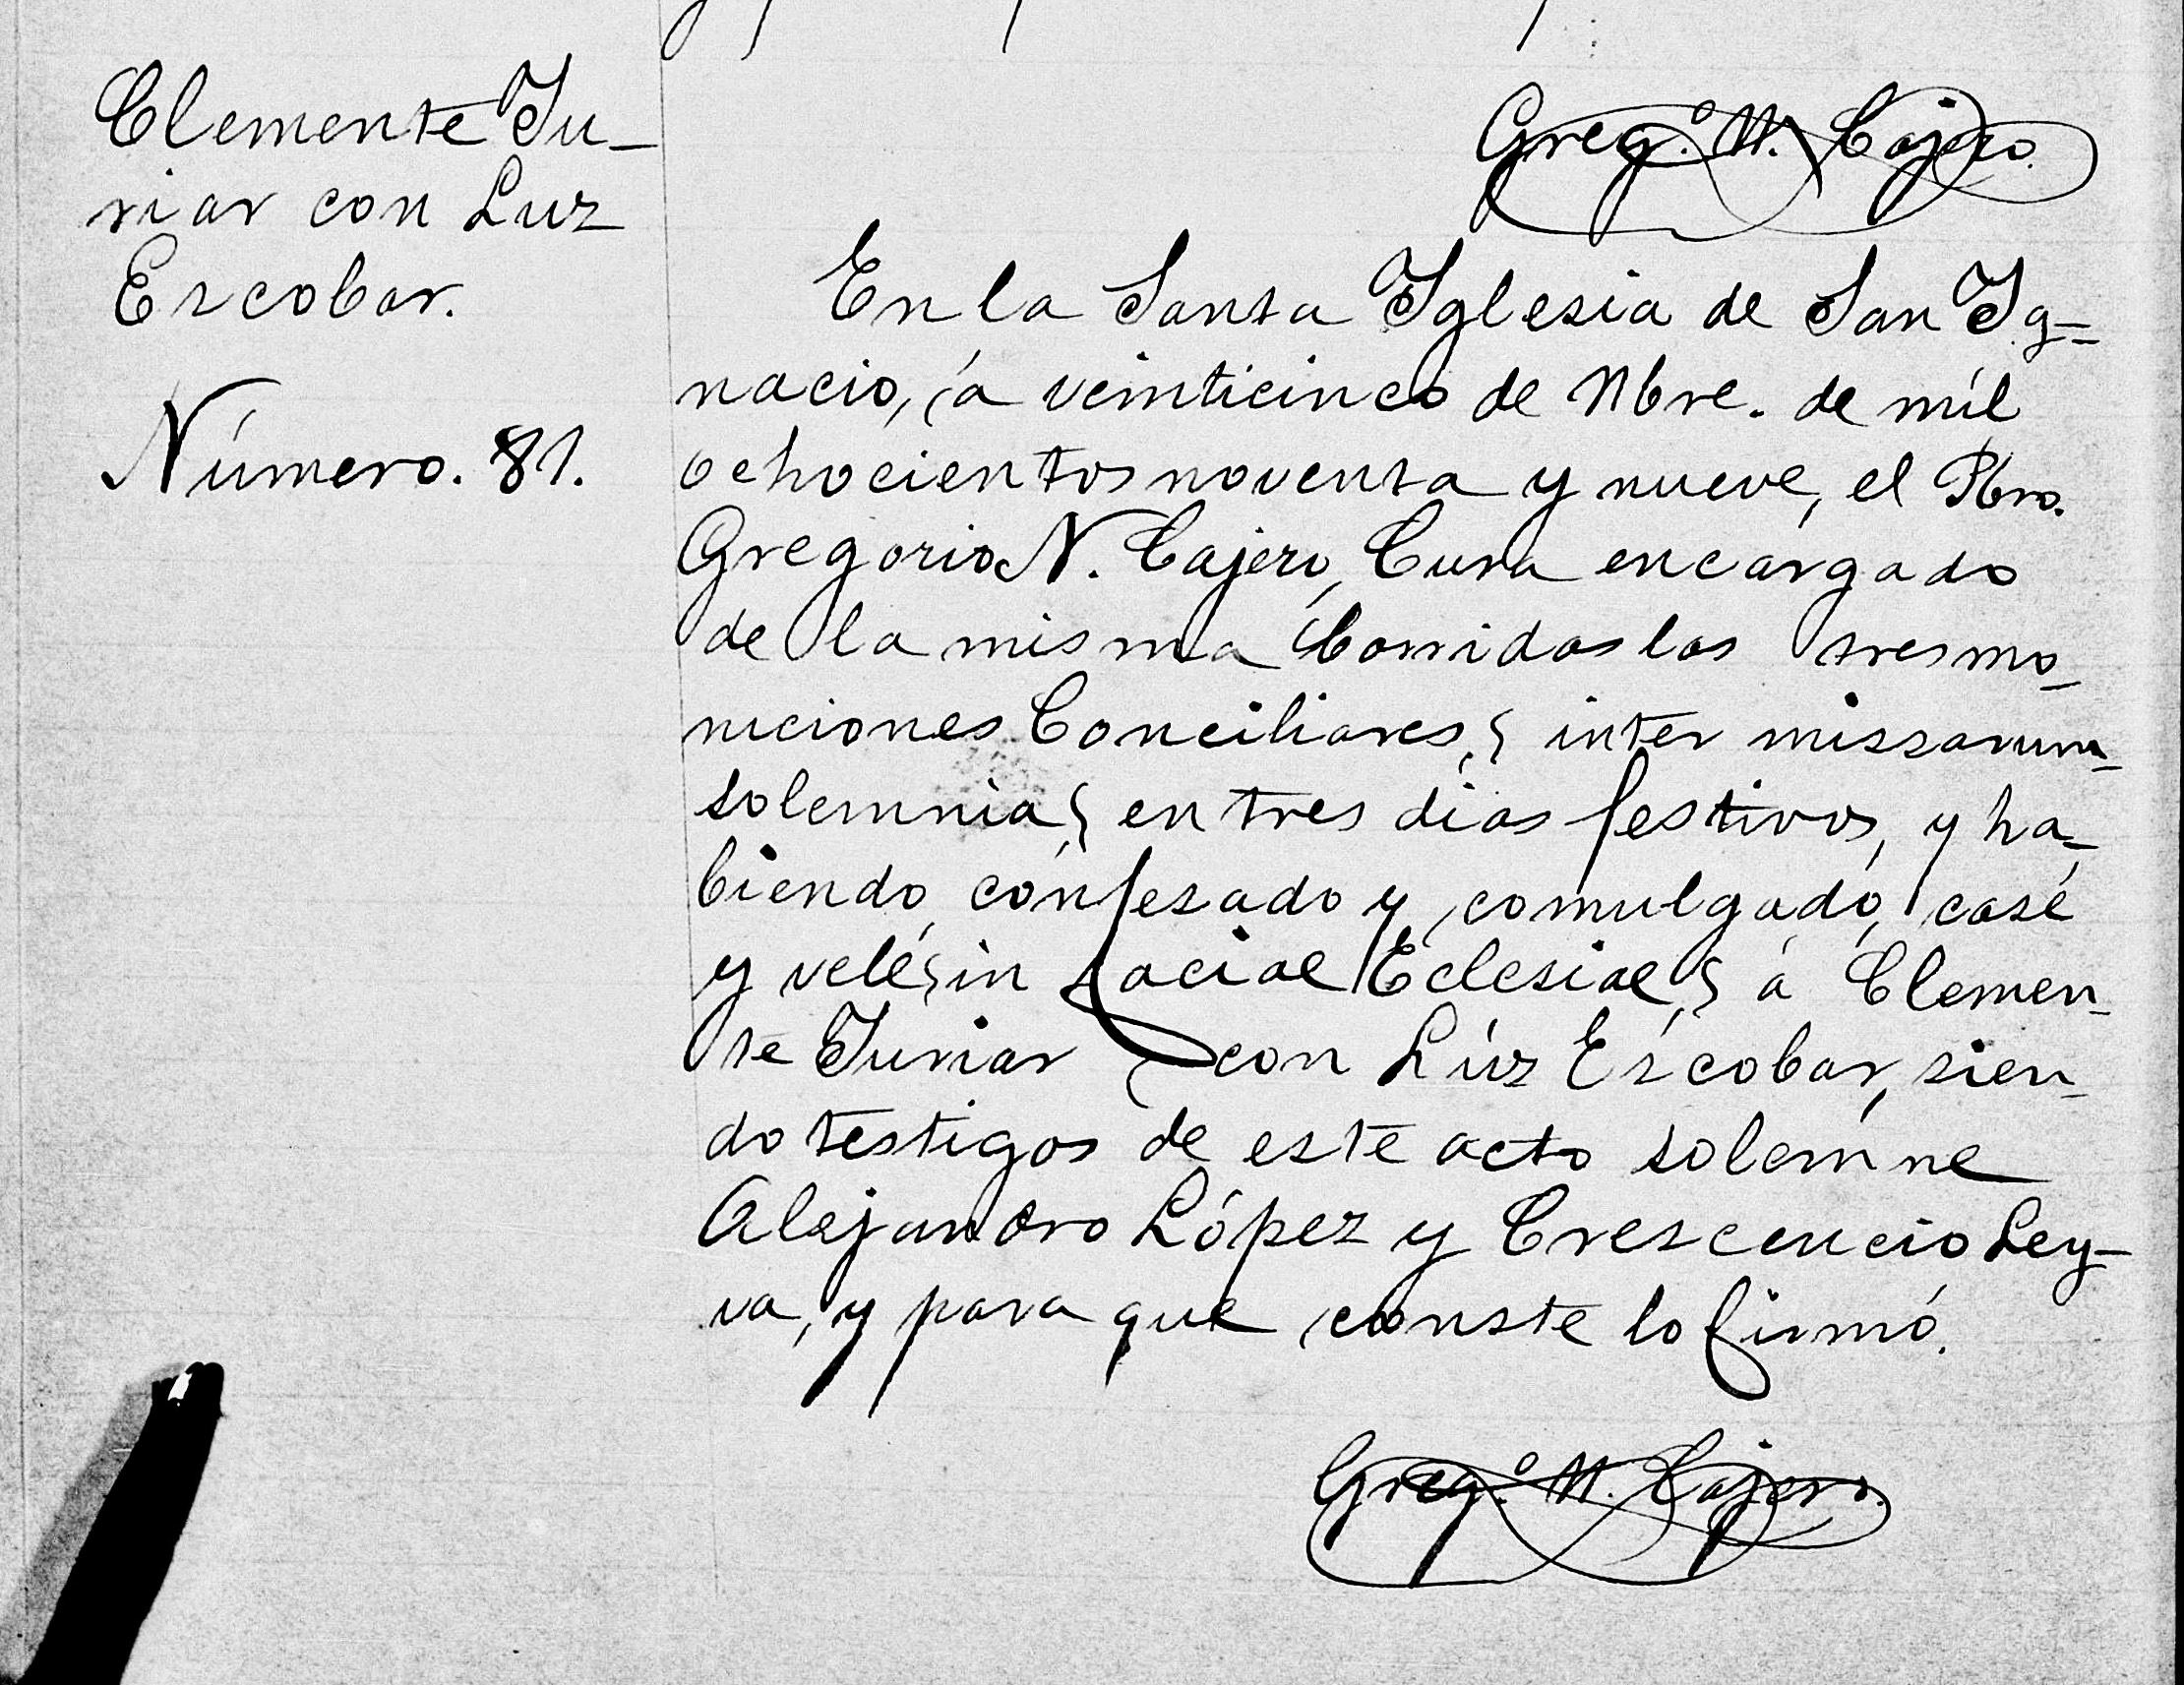 Clemente Ju-
riar con Luz
Escobar.
Número. 81.
Greg.º N. Cajero.
En la Santa Iglesia de San Ig=
nacio, á veinticinco de Nbre. de mil
ochocientos noventa y nueve, el Pbro.
Gregorio N. Cajero, Cura encargado
de la misma Corridas las tres mo-
niciones Conciliares, inter missarum
solemnia, en tres dias festivos, y ha-
biendo confesado y comulgado, casé
y velé, in faciae Eclesiae, á Clemen-
te Juriar con Lúz Escobar, sien-
do testigos de este acto solemne
Alejandro López y Crescencio Ley-
va, y para que conste lo firmó.
Greg.º N. Cajero.